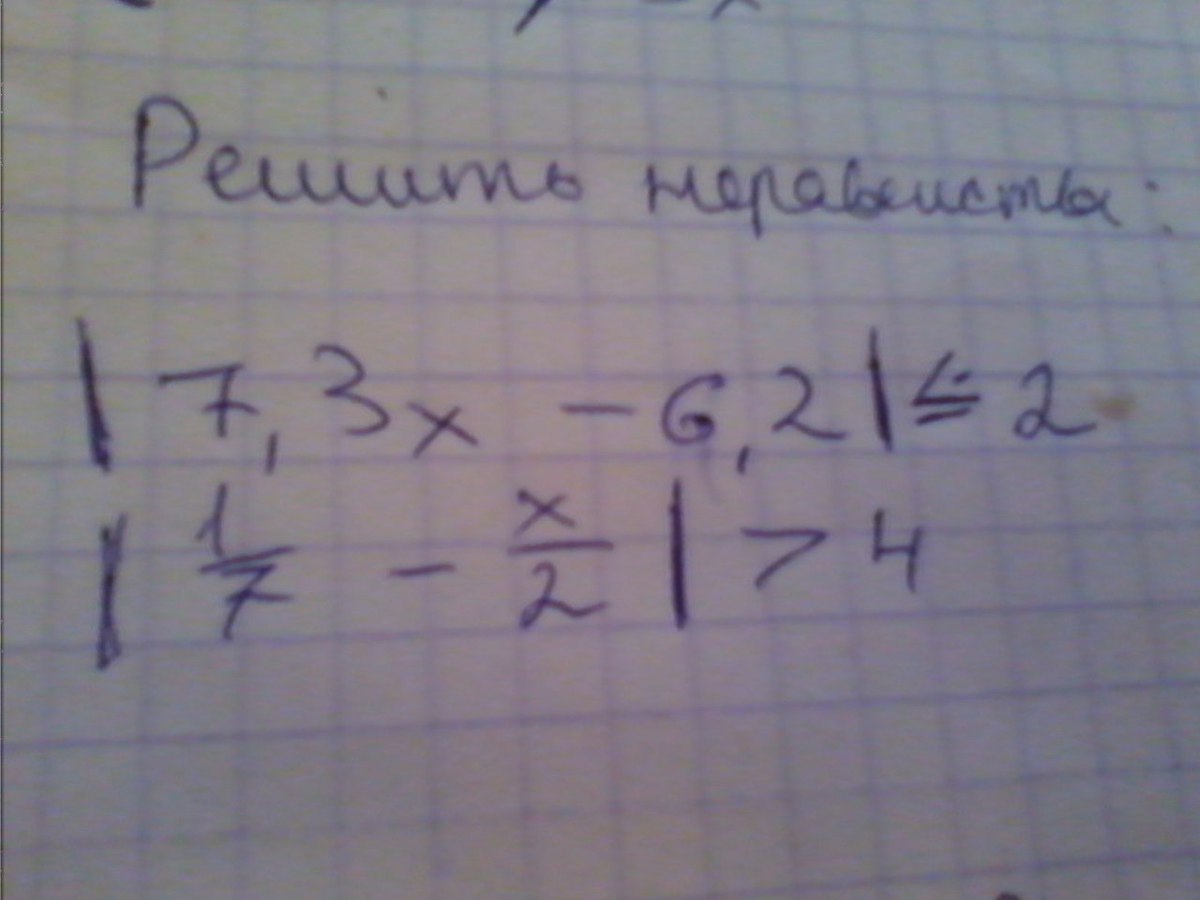 Решить неравенства:
| 7,3x - 6,2 | ≤ 2
| 1/7 - x/2 | > 4